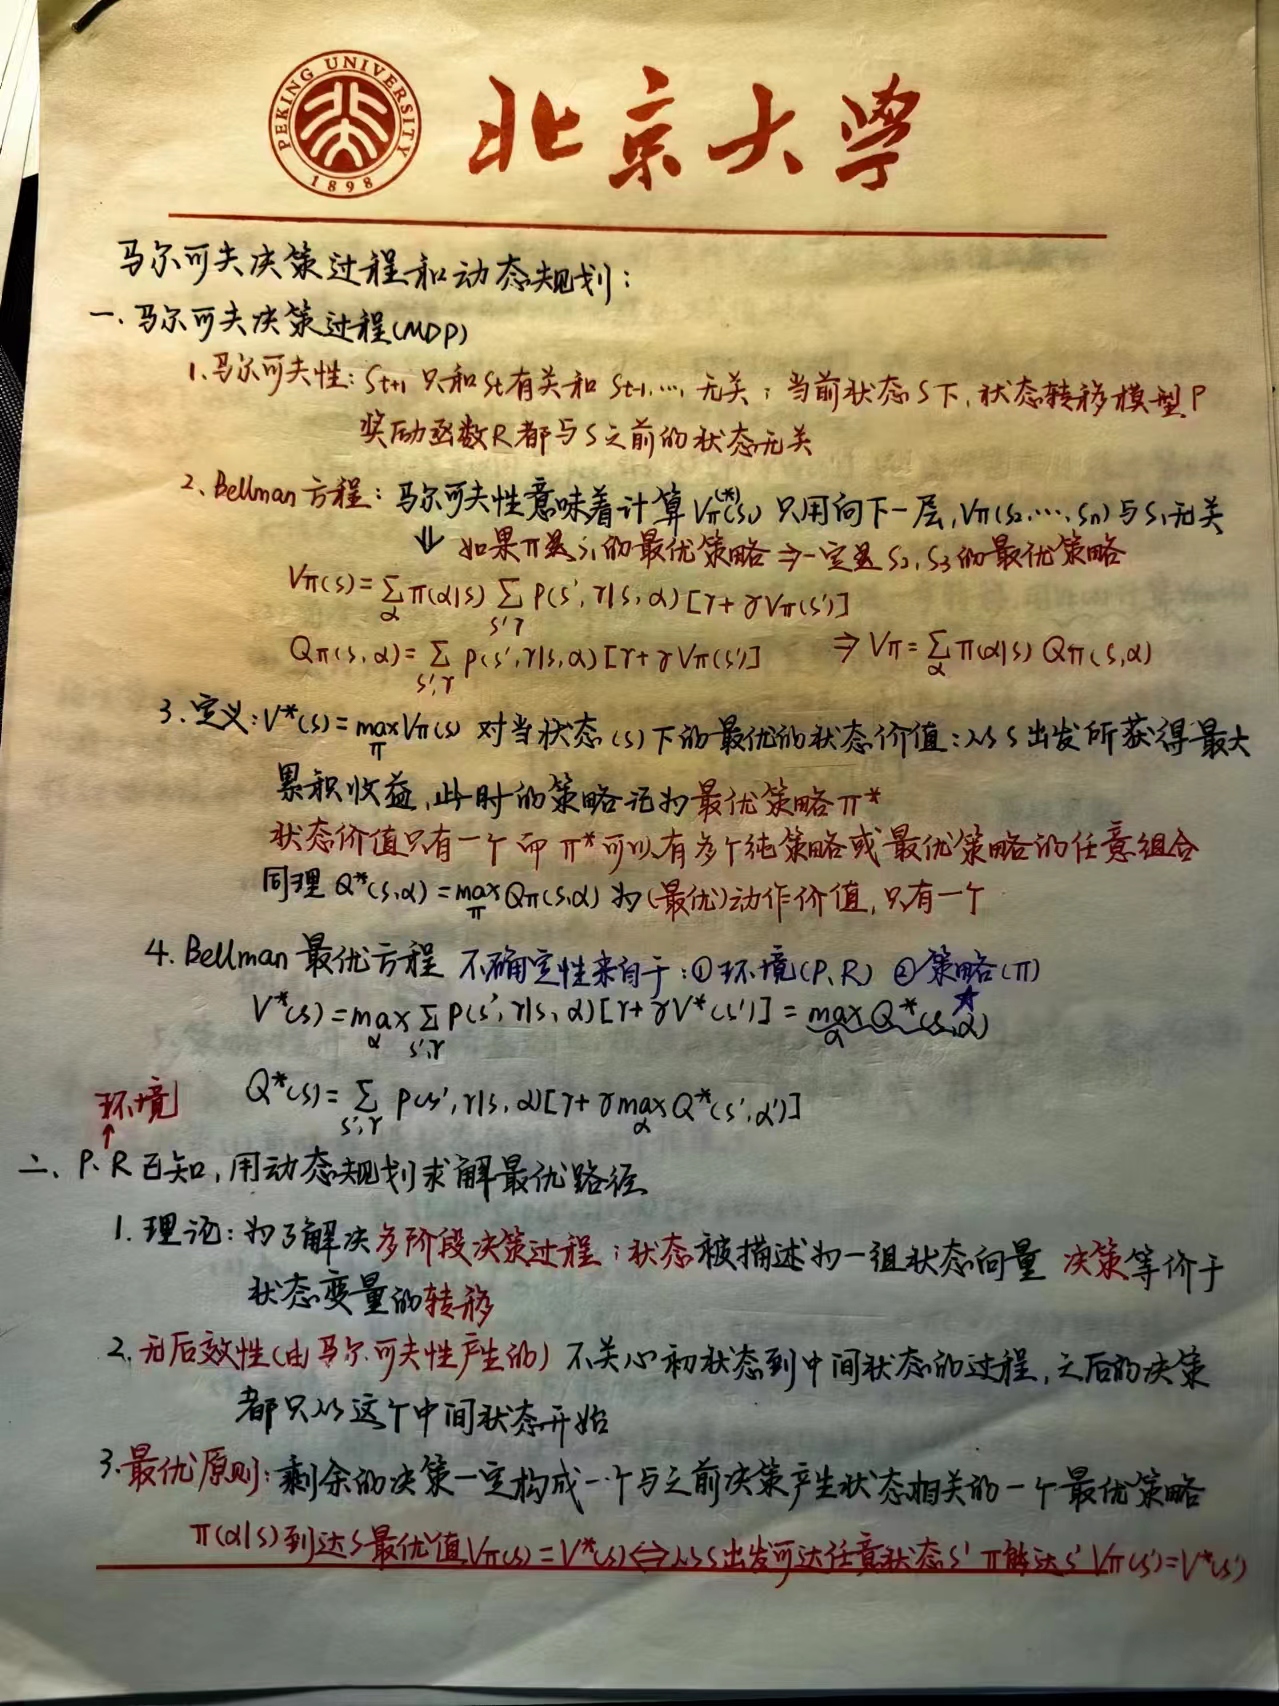 PEKING UNIVERSITY
1898
北京大学
马尔可夫决策过程和动态规划：
一、马尔可夫决策过程(MDP)
1.马尔可夫性：St+1 只和St有关和 St-1,…, 无关；当前状态S下，状态转移模型P
奖励函数R都与S之前的状态无关
2、Bellman方程：马尔可夫性意味着计算Vπ^(*)(s1) 只用向下一层,Vπ(s2,…,sn)与s1无关
⇓ 如果π是s1的最优策略⇒一定是s2,s3的最优策略
Vπ(s)=∑_α π(α|s) ∑_{s',γ} P(s',γ|s,α)[γ+γVπ(s')]
Qπ(s,α)=∑_{s',γ} P(s',γ|s,α)[γ+γVπ(s')] ⇒ Vπ=∑_α π(α|s) Qπ(s,α)
3.定义：V*(s)=max_π Vπ(s) 对当状态(s)下的最优的状态价值：从s出发所获得最大
累积收益，此时的策略记为最优策略π*
状态价值只有一个而π*可以有多个纯策略或最优策略的任意组合
同理 Q*(s,α)=max_π Qπ(s,α) 为(最优)动作价值，只有一个
4.Bellman最优方程 不确定性来自于：①环境(P、R) ②策略(π)
V*(s)=max_α ∑_{s',γ} P(s',γ|s,α)[γ+γV*(s')]=max_α Q*(s,α)
Q*(s)=∑_{s',γ} P(s',γ|s,α)[γ+γmax_α Q*(s',α')]
环境
↑
二、P、R已知，用动态规划求解最优路径
1.理论：为了解决多阶段决策过程；状态被描述为一组状态向量 决策等价于
状态变量的转移
2.无后效性(由马尔可夫性产生的) 不关心初状态到中间状态的过程，之后的决策
都只从这个中间状态开始
3.最优原则：剩余的决策一定构成一个与之前决策产生状态相关的一个最优策略
π(α|s)到达s最优值Vπ(s)=V*(s)⇔从s出发可达任意状态s' π能达s' Vπ(s')=V*(s')